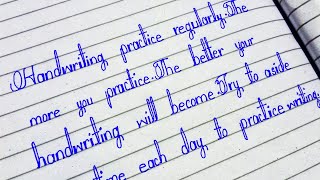 Handwriting practice regularly. The
more you practice. The better your
handwriting will become. Try, to aside
time each day, to practice writing,